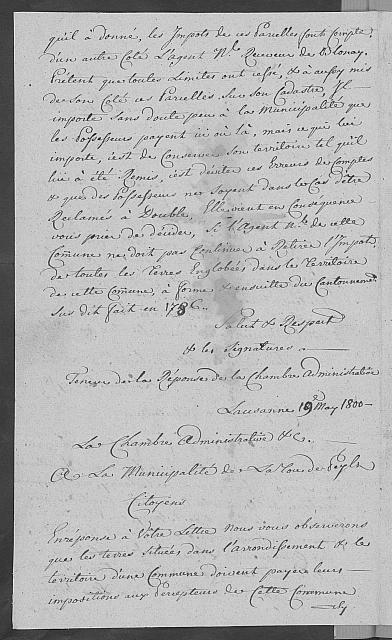 qu'il à donné, les Impots de ces Parcelles sont Compté,
d'un autre Coté L'agent N.le Receveur de Blonay.
Prétent que toutes Limites ont cessé, & à aussy mis
de son Coté ces Parcelles sur son Cadastre, Il
importe sans doute peu à la Municipalité que
les Possesseurs payent ici où là, mais ce qui lui
importe, c'est de Conserver son territoire tel qu'il
lui à été Remis, c'est d'éviter ces Erreurs de Comptes
& que des Possesseurs ne soyent dans le Cas d'être
Reclamés à Double, Elle vient en Conséquence
vous prier de décider, si l'Agent N.le de cette
Comune ne doit pas Continuer à Retirer l'Impot
de toutes les terres Englobées dans le Territoire
de cette Comune, à forme & ensuitte du Cantonnement
sus dit fait en 1786.
Salut & Respect
& les signatures
Teneur de la Réponse de la Chambre Administrative
Lausanne 19e May 1800
La Chambre Administrative &c.
A La Municipalité de La Tour de Peylz
Citoyens
En réponse à Votre Lettre Nous vous observerons
que les terres situées dans l'arrondissement & le
territoire d'une Commune doivent payer leurs
impositions aux Percepteurs de Cette Commune